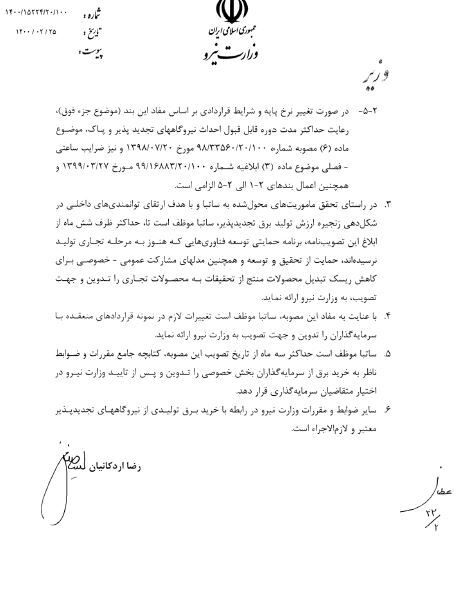 جمهوری اسلامی ایران
وزارت نیرو
شماره : ۱۴۰۰/۱۵۲۲۴/۲۰/۱۰۰
تاریخ : ۱۴۰۰/۰۲/۲۵
پیوست :
وزیر
۲-۵- در صورت تغییر نرخ پایه و شرایط قراردادی بر اساس مفاد این بند (موضوع جزء فوق)،
رعایت حداکثر مدت دوره قابل قبول احداث نیروگاههای تجدید پذیر و پاک، موضوع
ماده (۶) مصوبه شماره ۹۸/۳۳۵۶۰/۲۰/۱۰۰ مورخ ۱۳۹۸/۰۷/۲۰ و نیز ضرایب ساعتی
- فصلی موضوع ماده (۳) ابلاغیه شماره ۹۹/۱۶۸۸۳/۲۰/۱۰۰ مورخ ۱۳۹۹/۰۳/۲۷ و
همچنین اعمال بندهای ۲-۱ الی ۲-۵ الزامی است.
۳. در راستای تحقق ماموریت‌های محول‌شده به ساتبا و با هدف ارتقای توانمندی‌های داخلی در
شکل‌دهی زنجیره ارزش تولید برق تجدیدپذیر، ساتبا موظف است تا، حداکثر ظرف شش ماه از
ابلاغ این تصویب‌نامه، برنامه حمایتی توسعه فناوری‌هایی که هنوز به مرحله تجاری تولید
نرسیده‌اند، حمایت از تحقیق و توسعه و همچنین مدلهای مشارکت عمومی - خصوصی برای
کاهش ریسک تبدیل محصولات منتج از تحقیقات به محصولات تجاری را تدوین و جهت
تصویب، به وزارت نیرو ارائه نماید.
۴. با عنایت به مفاد این مصوبه، ساتبا موظف است تغییرات لازم در نمونه قراردادهای منعقده با
سرمایه‌گذاران را تدوین و جهت تصویب به وزارت نیرو ارائه نماید.
۵. ساتبا موظف است حداکثر سه ماه از تاریخ تصویب این مصوبه، کتابچه جامع مقررات و ضوابط
ناظر به خرید برق از سرمایه‌گذاران بخش خصوصی را تدوین و پس از تایید وزارت نیرو در
اختیار متقاضیان سرمایه‌گذاری قرار دهد.
۶. سایر ضوابط و مقررات وزارت نیرو در رابطه با خرید برق تولیدی از نیروگاههای تجدیدپذیر
معتبر و لازم‌الاجراء است.
رضا اردکانیان
۲۳/۲